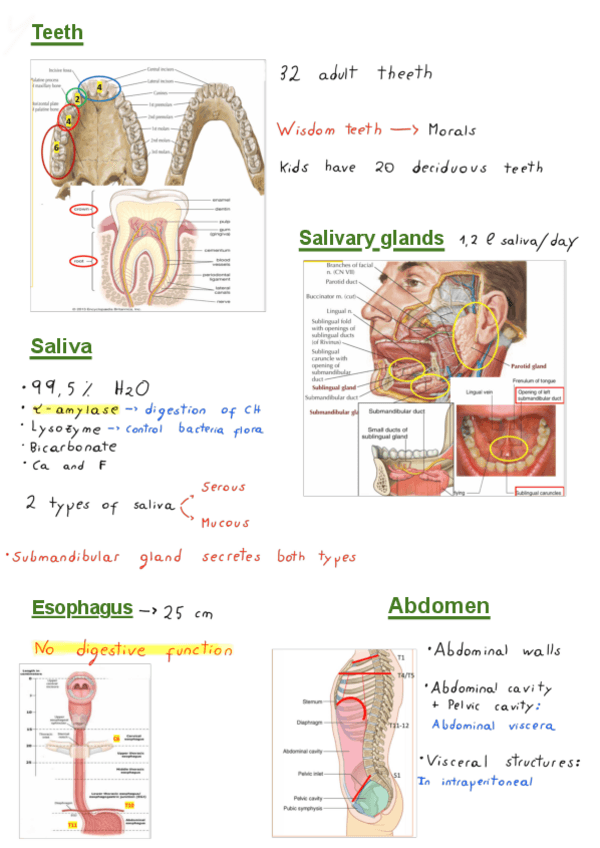 Teeth
32 adult theeth
Wisdom teeth → Morals
Kids have 20 deciduous teeth
Incisive bone
Central incisors
Lateral incisors
Canines
1st premolars
2nd premolars
1st molars
2nd molars
3rd molars
4
2
4
6
crown
root
enamel
dentin
pulp
gum
(gingiva)
cementum
blood
vessels
periodontal
ligament
lateral
canals
nerve
Salivary glands 1,2 l saliva/day
Branches of facial
n. (CN VII)
Parotid duct
Buccinator m. (cut)
Lingual n.
Sublingual fold
with openings of
sublingual ducts
(of Rivinus)
Sublingual
caruncle with
opening of
submandibular
duct
Sublingual gland
Submandibular duct
Submandibular gl
Parotid gland
Frenulum of tongue
Lingual vein
Opening of left
submandibular duct
Submandibular duct
Small ducts of
sublingual gland
Sublingual caruncles
Saliva
• 99,5% H2O
• α-amylase → digestion of CH
• Lysozyme → control bacteria flora
• Bicarbonate
• Ca and F
2 types of saliva
Serous
Mucous
• Submandibular gland secretes both types
Esophagus → 25 cm
No digestive function
C6
T10
T11
Abdomen
T1
T4/T5
Sternum
Diaphragm
T11-12
Abdominal cavity
Pelvic inlet
S1
Pelvic cavity
Pubic symphysis
• Abdominal walls
• Abdominal cavity
+ Pelvic cavity:
Abdominal viscera
• Visceral structures:
In intraperitoneal